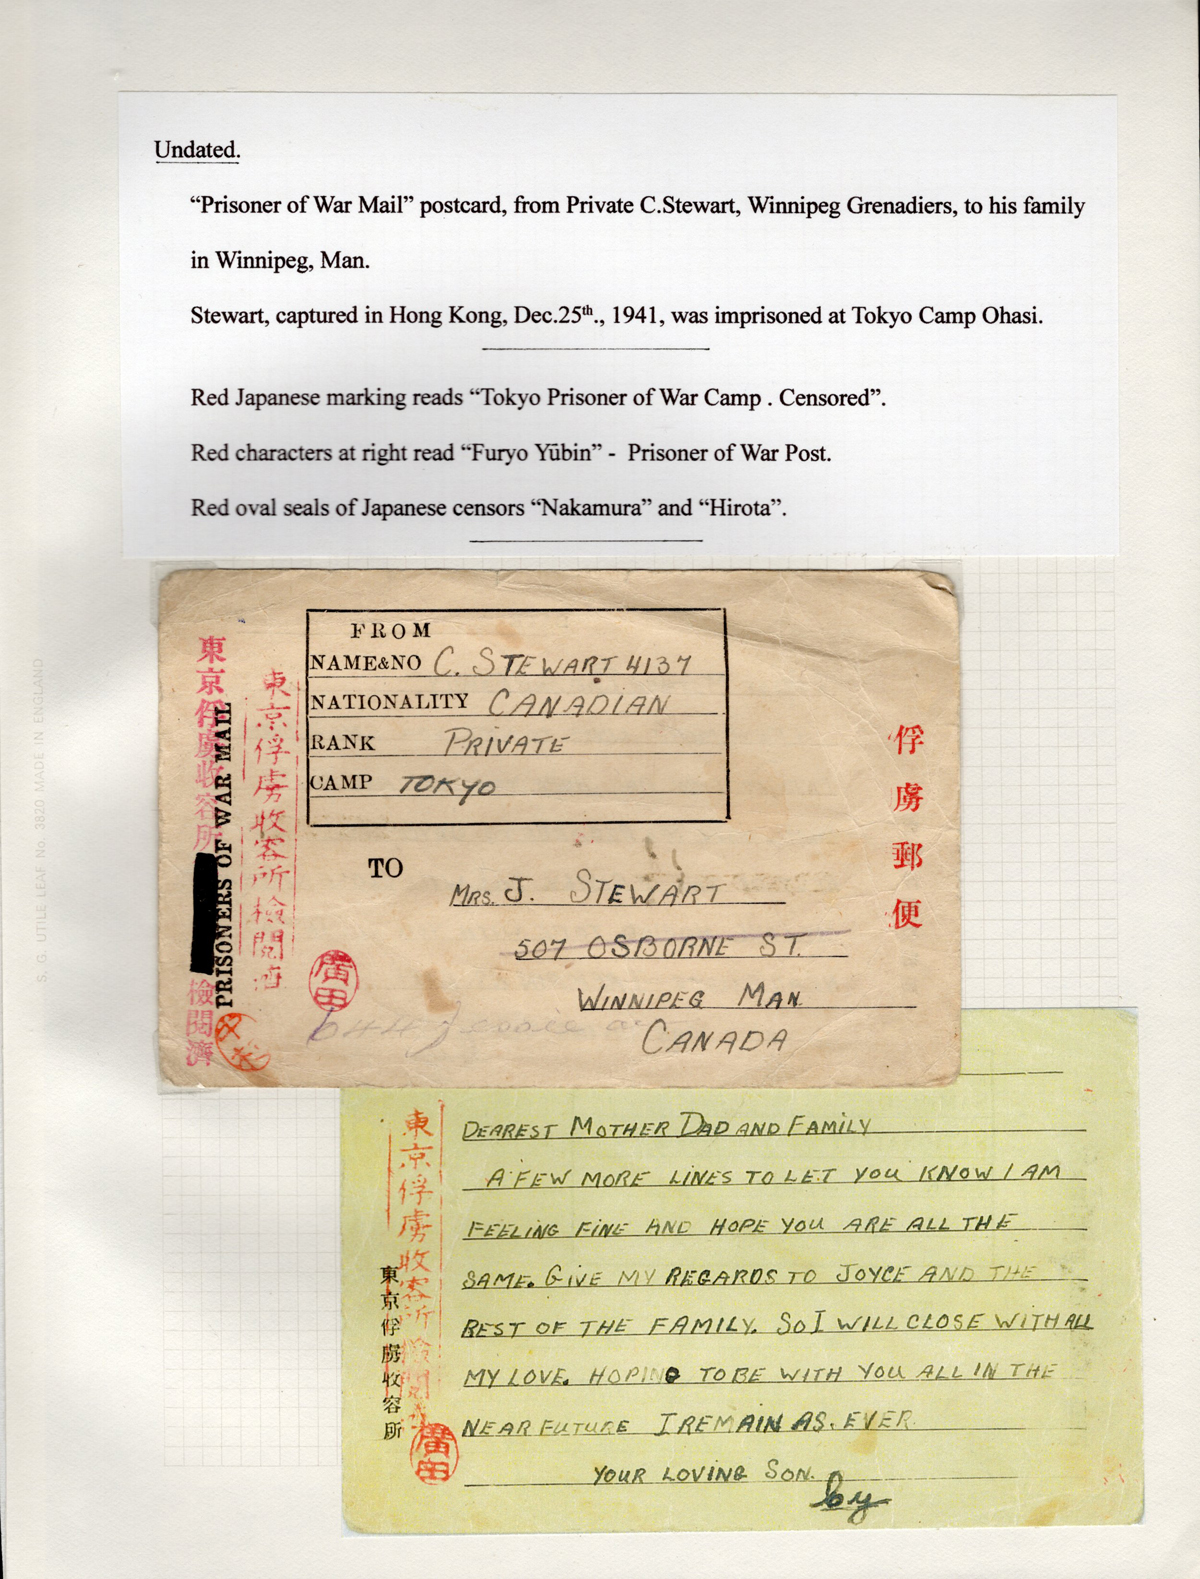 Undated.
“Prisoner of War Mail” postcard, from Private C.Stewart, Winnipeg Grenadiers, to his family
in Winnipeg, Man.
Stewart, captured in Hong Kong, Dec.25th., 1941, was imprisoned at Tokyo Camp Ohasi.
Red Japanese marking reads “Tokyo Prisoner of War Camp . Censored”.
Red characters at right read “Furyo Yūbin” - Prisoner of War Post.
Red oval seals of Japanese censors “Nakamura” and “Hirota”.
S. G. UTILE LEAF No. 3820 MADE IN ENGLAND
東京俘虜收容所
檢閲濟
PRISONERS OF WAR MAIL
東京俘虜收容所檢閲濟
FROM
NAME&NO C. STEWART 4137
NATIONALITY CANADIAN
RANK PRIVATE
CAMP TOKYO
俘虜郵便
TO
MRS. J. STEWART
507 OSBORNE ST.
WINNIPEG MAN.
CANADA
廣田
644 Jessie
東京俘虜收容所檢閲濟
東京俘虜收容所
廣田
DEAREST MOTHER DAD AND FAMILY
A FEW MORE LINES TO LET YOU KNOW I AM
FEELING FINE AND HOPE YOU ARE ALL THE
SAME. GIVE MY REGARDS TO JOYCE AND THE
REST OF THE FAMILY. SO I WILL CLOSE WITH ALL
MY LOVE. HOPING TO BE WITH YOU ALL IN THE
NEAR FUTURE I REMAIN AS. EVER.
YOUR LOVING SON.